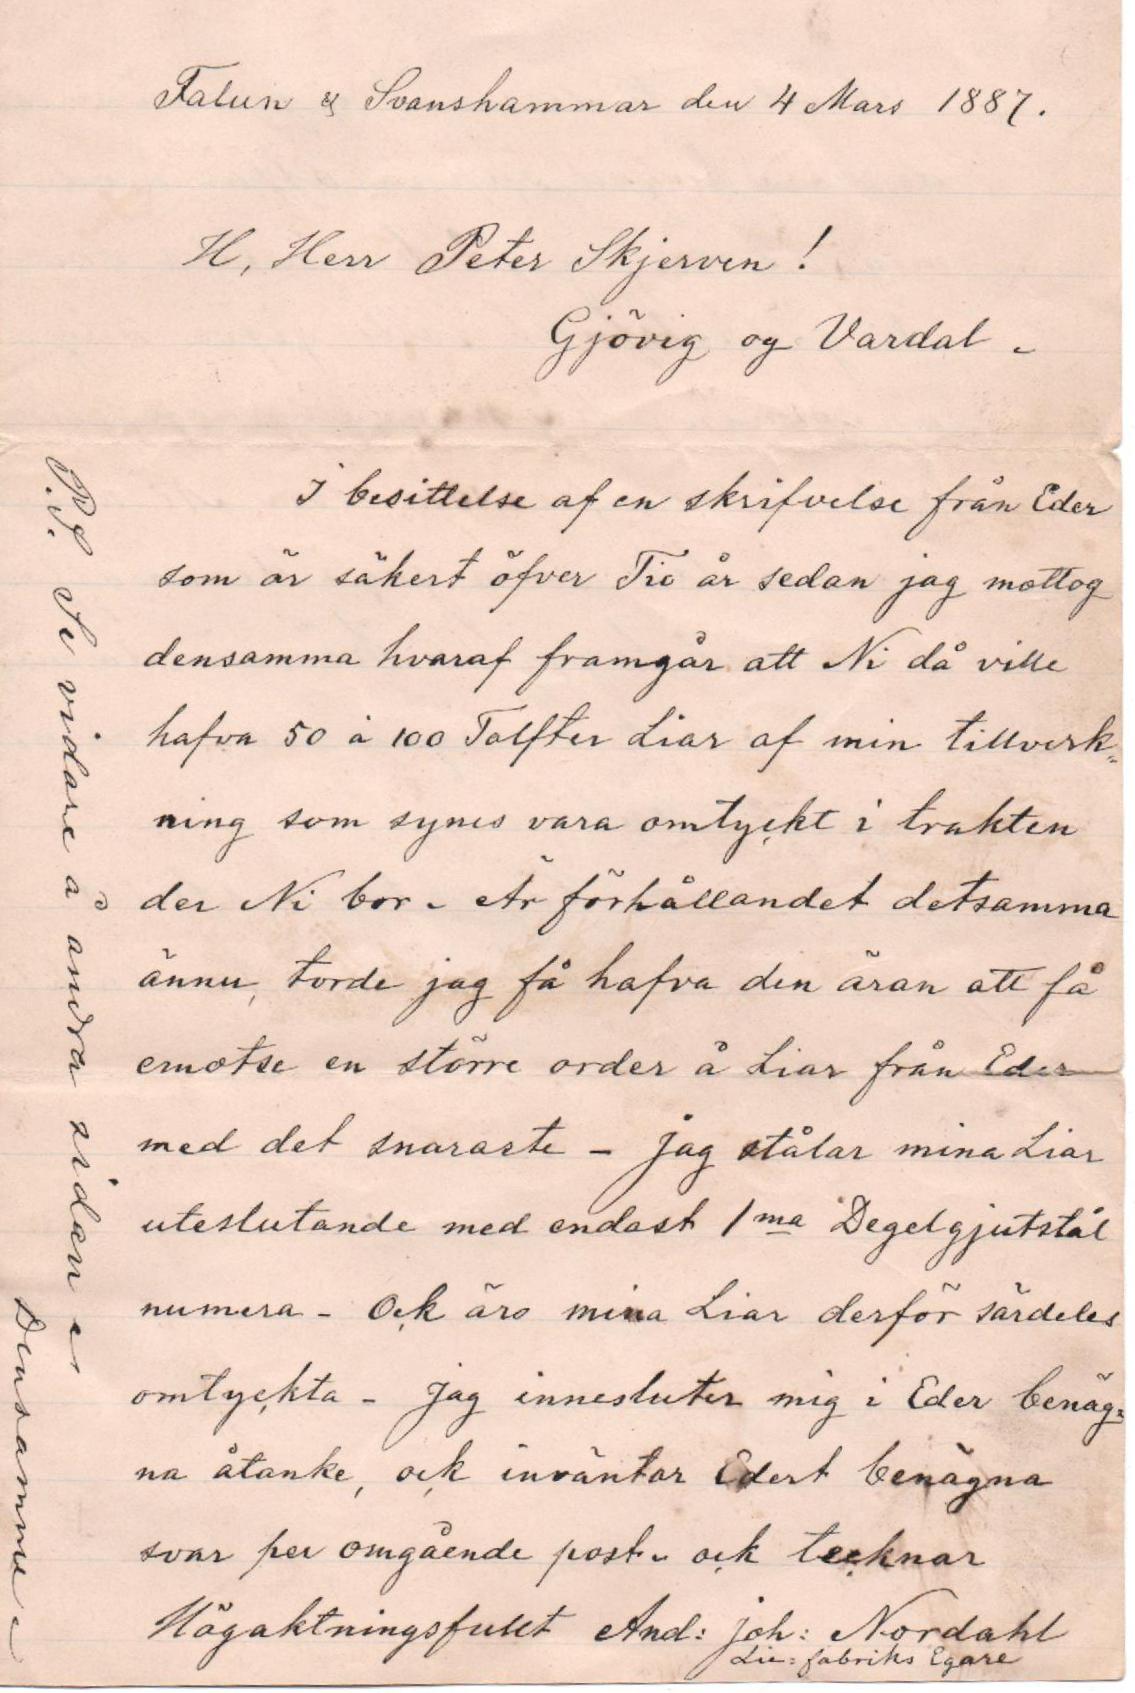 Falun & Svanshammar den 4 Mars 1887.
H, Herr Peter Skjerven!
Gjövig og Vardal -
I besittelse af en skrifvelse från Eder
som är säkert öfver Tio år sedan jag mottog
densamma hvaraf framgår att Ni då ville
hafva 50 à 100 Tolfter Liar af min tillverk-
ning som synes vara omtyckt i trakten
der Ni bor - Är förhållandet detsamma
ännu, torde jag få hafva den äran att få
emotse en större order å Liar från Eder
med det snaraste - jag stålar mina Liar
uteslutande med endast 1ma Degelgjutstål
numera - Ock äro mina Liar derför särdeles
omtyckta - Jag innesluter mig i Eder benäg-
na åtanke, ock inväntar Edert benägna
svar per omgående post - ock tecknar
Högaktningsfullt And: Joh: Nordahl
Lie=fabriks Egare
P.S. Se vidare å andra sidan -
Densamme -